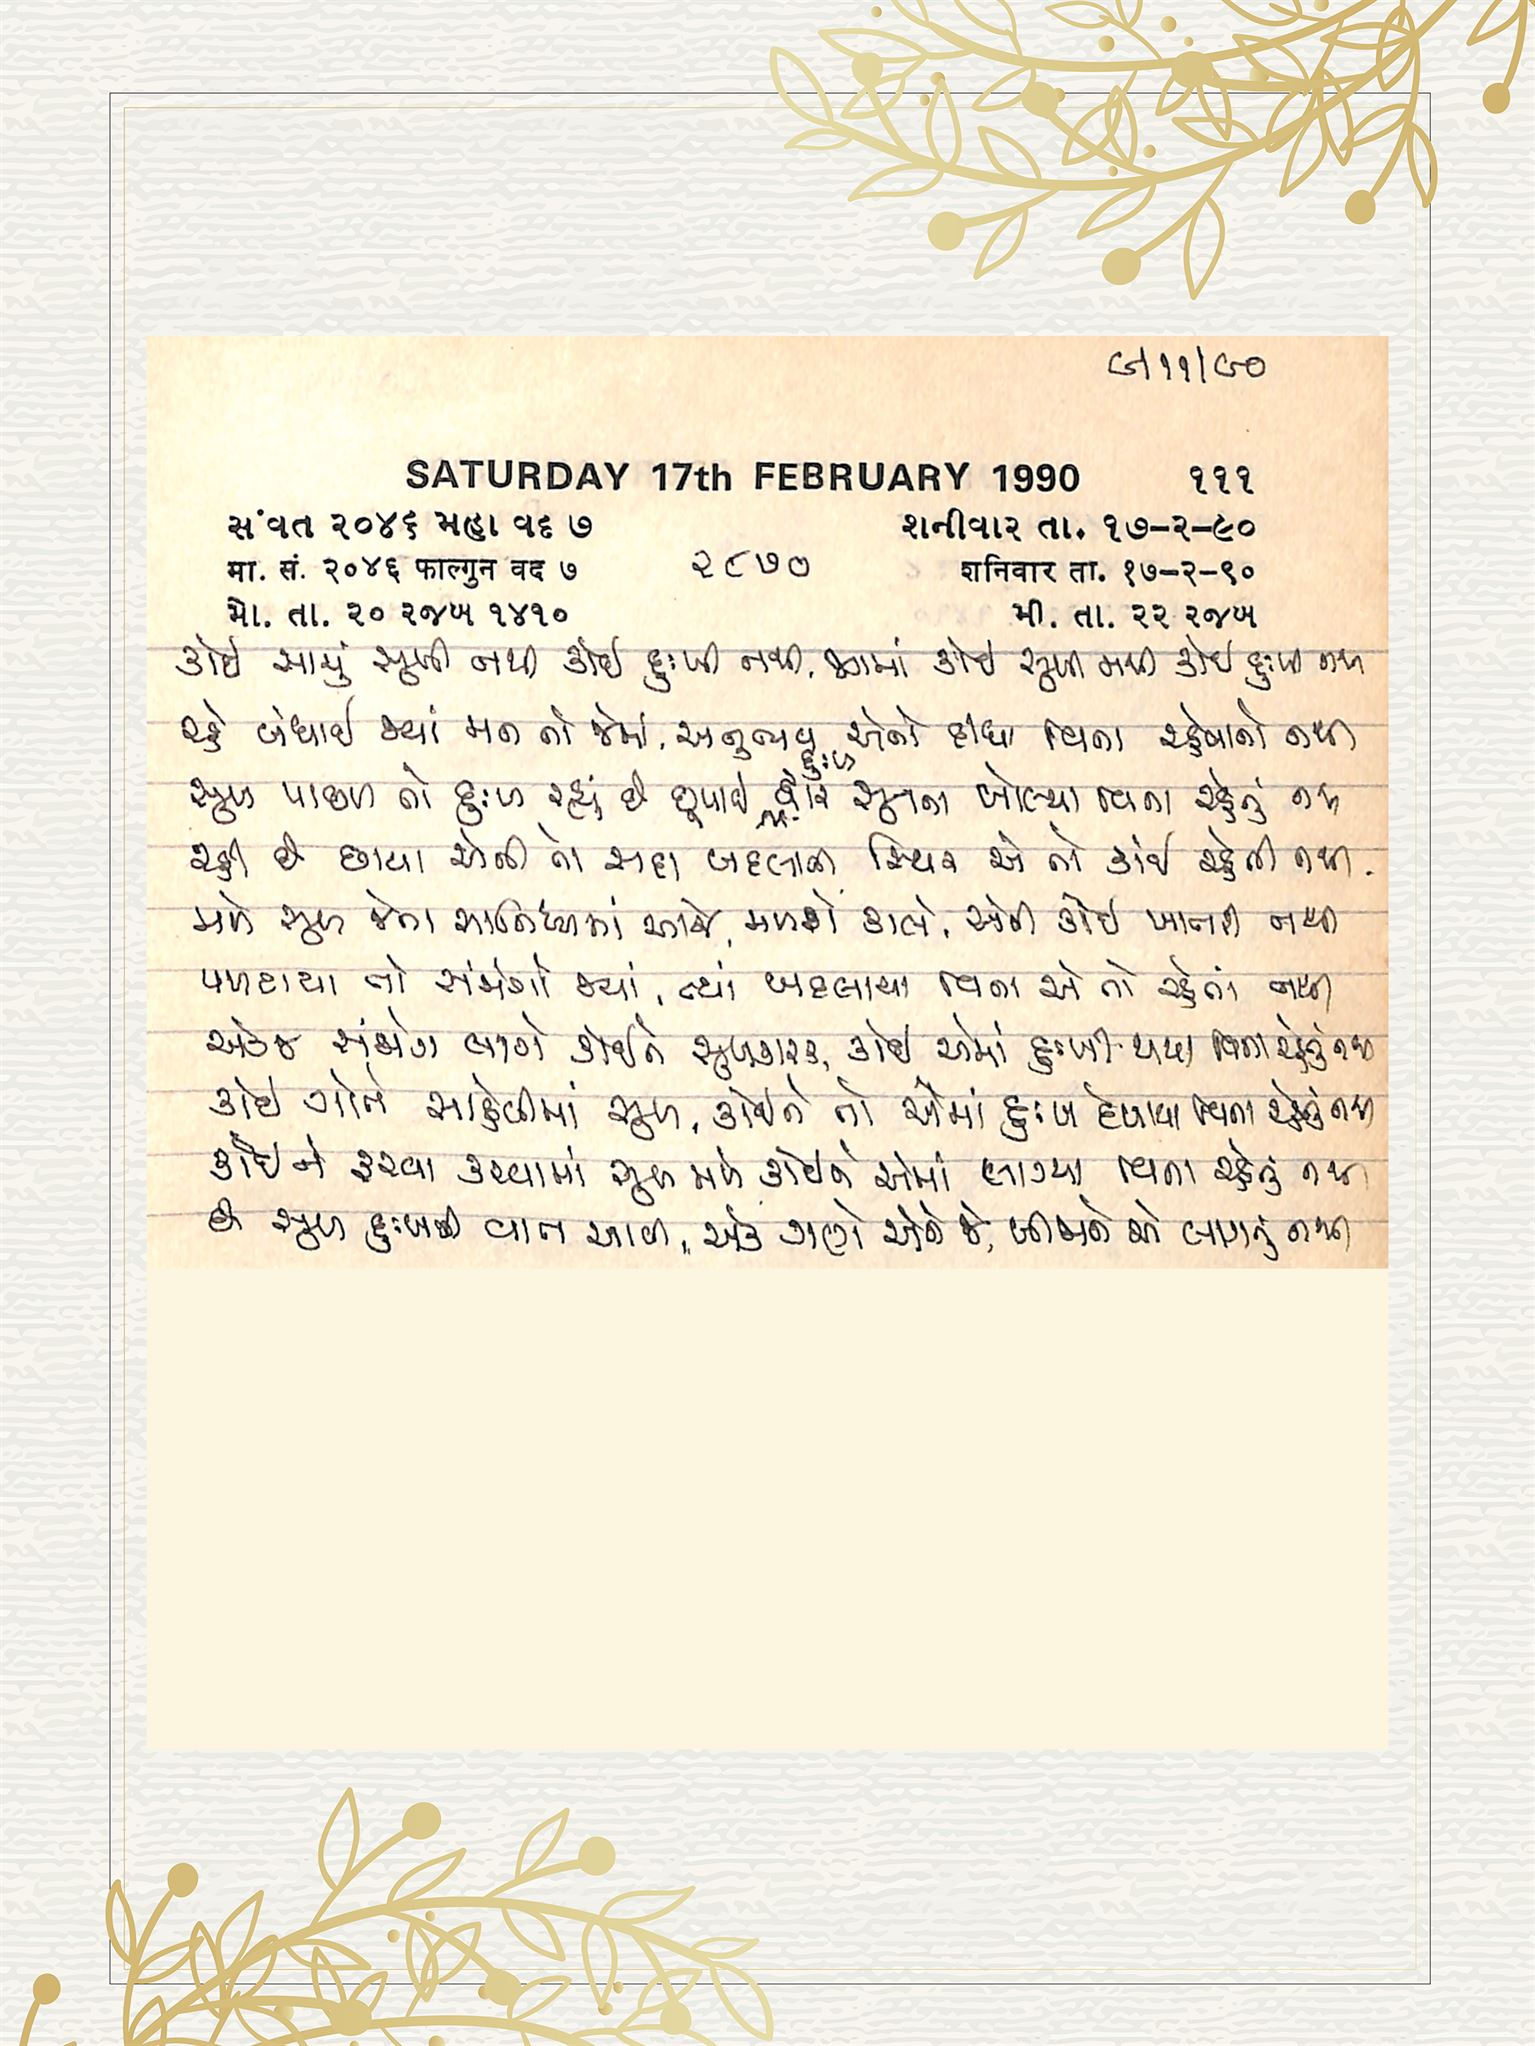 ૯/૧૧/૯૦
SATURDAY 17th FEBRUARY 1990 ૧૧૧
સંવત ૨૦૪૬ મહા વદ ૭ શનીવાર તા. ૧૭-૨-૯૦
मा. सं. २०४६ फाल्गुन वद ७ ૨૮૭૦ शनिवार ता. १७-२-९०
મૈા. તા. ૨૦ રજબ ૧૪૧૦ મી. તા. ૨૨ રજબ
કોઈ સાચું સુખી નથી કોઈ દુઃખી નથી, જગમાં કોઈ સુખી નથી કોઈ દુઃખી નથી
રહે બંધાઈ જ્યાં મન તો જેમાં, અનુભવ એનો દીધા વિના રહેવાનો નથી
સુખ પાછળ તો દુઃખ રહ્યું છે છૂપાઈ દુઃખ સુખના બોલ્યા વિના રહેતું નથી
રહી છે છાયા એની તો સદા બદલાતી સ્થિર એ તો કાંઈ રહેતી નથી.
મળે સુખ જેના સાનિધ્યમાં આજે, મળશે કાલે, એની કોઈ ખાત્રી નથી
પળટાયા તો સંજોગો જ્યાં, ત્યાં બદલાયા વિના એ તો રહેતાં નથી
એકજ સંજોગ લાગે કોઈને સુખકારક, કોઈ એમાં દુઃખી થયા વિના રહેતું નથી
કોઈ ગોતે સાહેબીમાં સુખ, કોઈને તો એમાં દુઃખ દેખાયા વિના રહેતું નથી
કોઈને ફરવા ફરવામાં સુખ મળે કોઈને એમાં લાગ્યા વિના રહેતું નથી
છે સુખ દુઃખની વાત આવી, એક ગણે એને જે, બીજાને એ લાગતું નથી